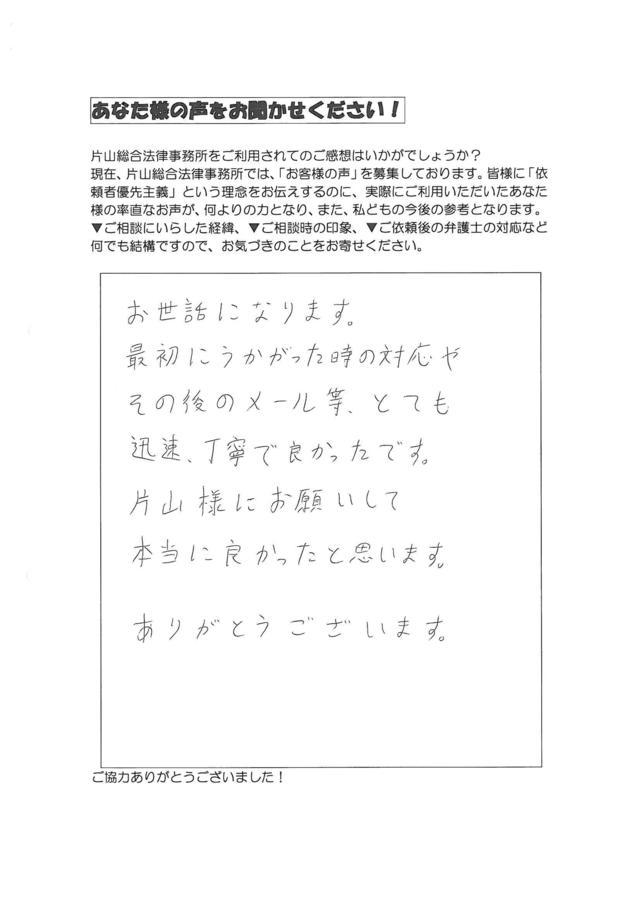 あなた様の声をお聞かせください！
片山総合法律事務所をご利用されてのご感想はいかがでしょうか？
現在、片山総合法律事務所では、「お客様の声」を募集しております。皆様に「依
頼者優先主義」という理念をお伝えするのに、実際にご利用いただいたあなた
様の率直なお声が、何よりの力となり、また、私どもの今後の参考となります。
▼ご相談にいらした経緯、▼ご相談時の印象、▼ご依頼後の弁護士の対応など
何でも結構ですので、お気づきのことをお寄せください。
お世話になります。
最初にうかがった時の対応や
その後のメール等、とても
迅速、丁寧で良かったです。
片山様にお願いして
本当に良かったと思います。
ありがとうございます。
ご協力ありがとうございました！